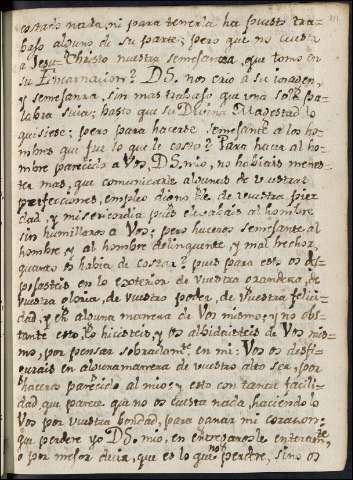 costado nada, ni para tenerla ha puesto tra-
bajo alguno de su parte; pero que no cuesta
a Jesu-Christo nuestra semejanza, que tomo en
su Encarnacion? D.S. nos crio à su imagen,
y semejanza, sin mas trabajo que una sola pa-
labra suia; basto que su Divina Magestad lo
quisiese; pero para hacerse semejante a los ho-
mbres que fue lo que le costo? Para hacer al ho-
mbre parecido a Vos, D.S. mio, no habiais menes-
ter mas, que comunicarle algunas de vuestras
perfecciones, empleo digno de vuestra pie-
dad, y misericordia pues elevabais al hombre
sin humillaros a Vos; pero haceros semejante al
hombre, y al hombre delinquente, y mal hechor,
quanto os habia de costar? pues para esto os des-
posasteis en lo exsterior de vuestra grandeza, de
vuestra gloria, de vuestro poder, de vuestra felici-
dad, y en alguna manera de Vos mismo; y no obs-
tante esto, lo hicisteis, y os olbidasteis de Vos mis-
mo, por pensar sobradamte. en mi: Vos os desfi-
gurais en alguna manera de vuestro alto ser, por
haceros parecido al mio; y esto con tanta facili-
dad, que parece que no os cuesta nada, haciendolo
Vos por vuestra bondad, para ganar mi corazon:
que perdere yo D.S. mio, en entregarosle enteramte.
o por mejor decir, que es lo que no perdere, sino os